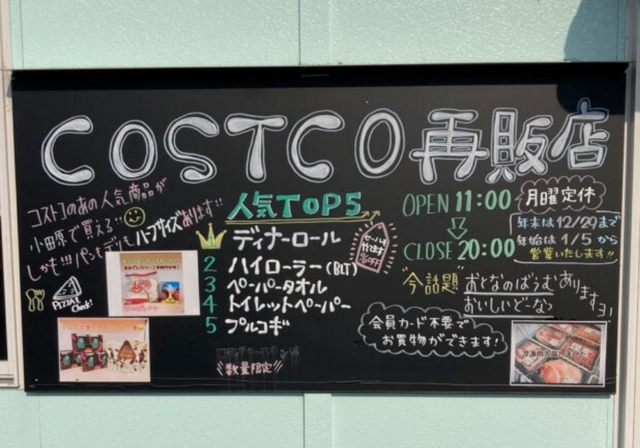 COSTCO再販店
コストコのあの人気商品が
小田原で買える!!
しかも!!!パンもデリもハーフサイズあります!!
PIZZAもCheck!
人気TOP5
1 ディナーロール
2 ハイローラー(BLT)
3 ペーパータオル
4 トイレットペーパー
5 プルコギ
数量限定
OPEN 11:00
CLOSE 20:00
月曜定休
年末は12/29まで
年始は1/5から
営業いたします!!
今話題
おとなのばうむ
おいしいどーなつ
あります
会員カード不要で
お買物ができます!